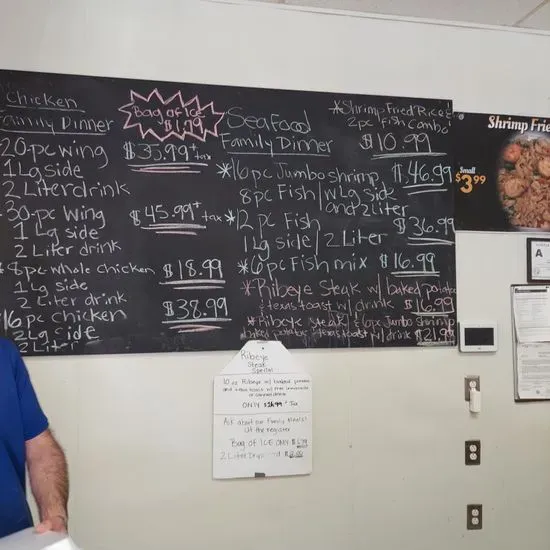 Chicken
Family Dinner
20-pc wing $35.99 + tax
1 Lg side
2 Liter drink
30-pc wing $45.99+ tax
1 Lg side
2 Liter drink
8pc whole chicken $18.99
1 Lg side
2 Liter drink
16 pc chicken $38.99
2 Lg side
2 Liter
Bag of Ice
$1.79
Seafood
Family Dinner
*Shrimp Fried Rice &
2pc fish Combo
$10.99
*16 pc Jumbo shrimp $46.99
8pc Fish / w Lg side
and 2 Liter
*12 pc Fish $36.99
1 Lg side / 2 Liter
*6 pc Fish mix $16.99
*Ribeye Steak w/ baked potato
& texas toast w/ drink $16.99
*Ribeye steak & 6pc Jumbo shrimp
baked potato & texas toast w/ drink $21.99
Shrimp Frie
Small
$3.99
A
Ribeye
Steak
Special
10 oz Ribeye w/ baked potato
ONLY + Tax
Ask about our Family Meals!
at the register
Bag of ICE ONLY
2 Liter